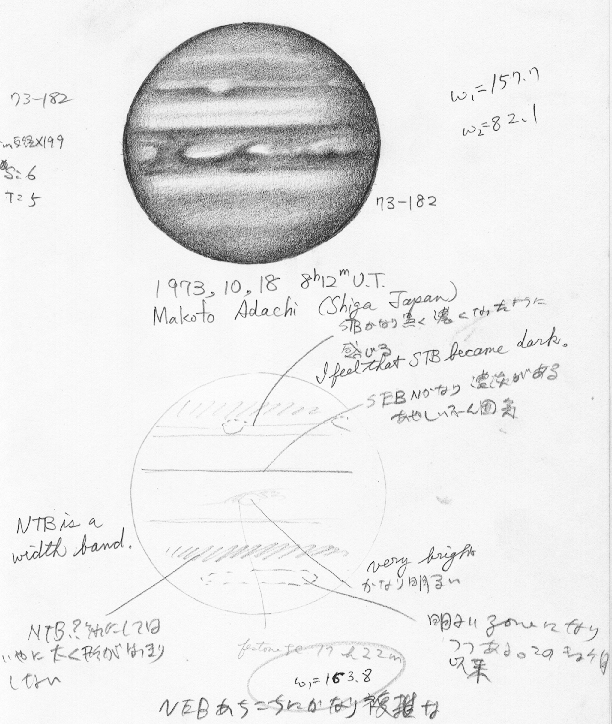 73-182
×199
S=6
T=5
ω₁=157.7
ω₂=82.1
73-182
1973, 10, 18 8ʰ12ᵐ U.T.
Makoto Adachi (Shiga Japan)
STBかなり黒く濃くなったように
感じる
I feel that STB became dark.
SEBNかなり濃淡がある
あやしいふん囲気
NTB is a
width band.
very bright
かなり明るい
NTB?
にしては
いやに太く形がはっきり
しない
明るいzoneになり
つつある。この
以来
festoon
22m
ω₁=163.8
NEBあちこちにかなり複雑な